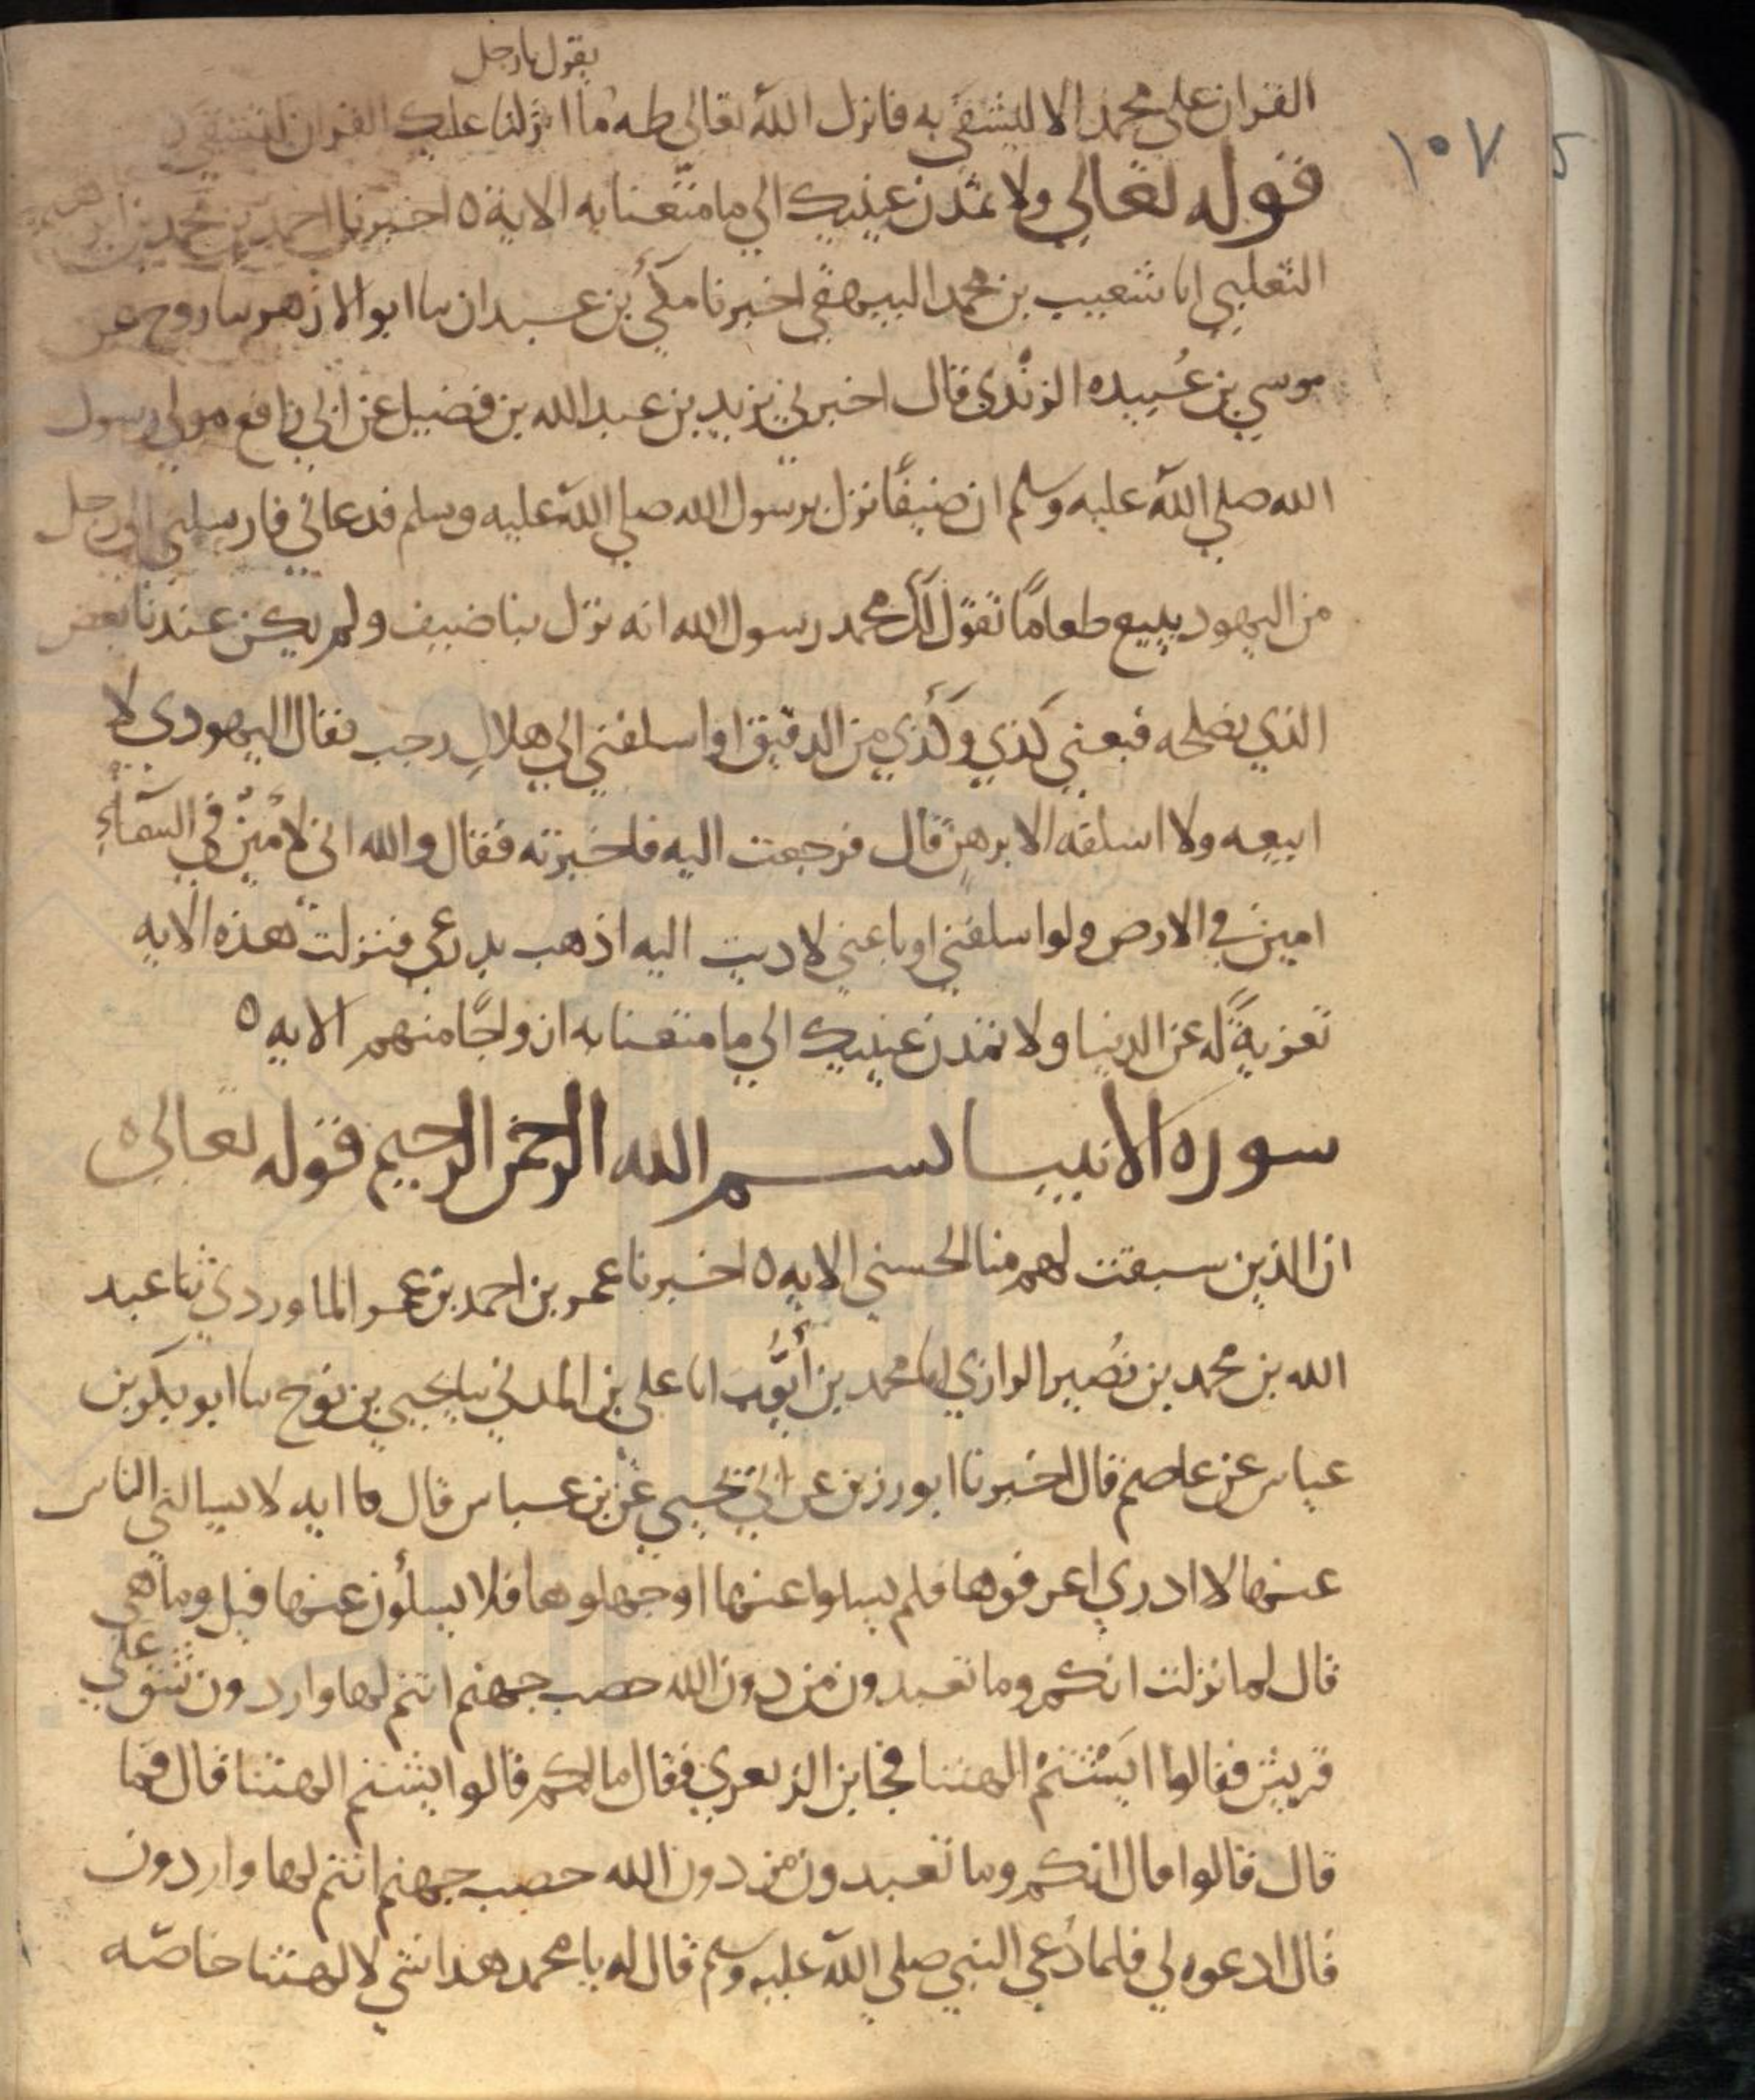 يقول يا رجل
القران على محمد الا ليشقي به فانزل الله تعالى طه ما انزلنا عليك القران لتشقي
١٠٧
قوله تعالي ولا تمدن عينيك الي ما متعنا به الاية ٥ اخبرنا احمد بن محمد بن ابرهيم
الثعلبي انا شعيب بن محمد البيهقي اخبرنا مكي بن عبدان نا ابو الازهر نا روح عن
موسي بن عبيده الزندي قال اخبرني يزيد بن عبد الله بن فضيل عن ابي رافع مولي رسول
الله صلي الله عليه وسلم ان ضيفا نزل برسول الله صلي الله عليه وسلم فدعاني فارسلني الي رجل
من اليهود يبيع طعاما تقول لك محمد رسول الله انه نزل بنا ضيف ولم يكن عندنا بعض
الذي نصلحه فبعني كذي وكذي من الدقيق او اسلفني الي هلال رجب فقال اليهودي لا
ابيعه ولا اسلفه الا برهن قال فرجعت اليه فاخبرته فقال والله اني لامين في السماء
امين في الارض ولو اسلفني او باعني لاديت اليه اذهب بدرعي فنزلت هذه الايه
تعزية له عن الدنيا ولا تمدن عينيك الي ما متعنا به ازواجا منهم الايه ٥
سوره الانبيا بسم الله الرحمن الرحيم قوله تعالي ٥
ان الذين سبقت لهم منا الحسني الايه ٥ اخبرنا عمر بن احمد بن عمر الماوردي نا عبد
الله بن محمد بن نصير الرازي انا محمد بن أيوب انا علي بن المديني نا يحيي بن نوح نا ابو بكر بن
عياس عن عاصم قال اخبرنا ابو رزين عن ابي يحيي عن بن عباس قال ما ايه لا يسالني الناس
عنها لا ادري اعرفوها فلم يسلوا عنها او جهلوها فلا يسلون عنها قيل وما هي
قال لما نزلت انكم وما تعبدون من دون الله حصب جهنم انتم لها واردون شق علي
قريش فقالوا ايشتم الهتنا فجا بن الزبعري فقال ما لكم قالوا يشتم الهتنا قال فما
قال قالوا قال انكم وما تعبدون من دون الله حصب جهنم انتم لها واردون
قال ادعوه لي فلما دعي النبي صلي الله عليه وسلم قال له يا محمد هذا شي لالهتنا خاصه